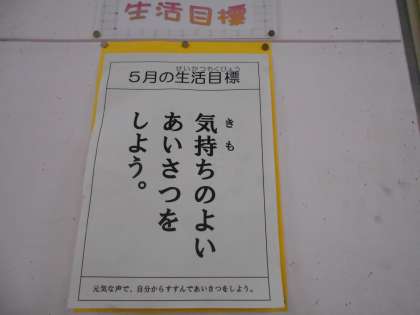 生活目標
せいかつもくひょう
５月の生活目標
きも
気持ちのよい
あいさつを
しよう。
元気な声で、自分からすすんであいさつをしよう。